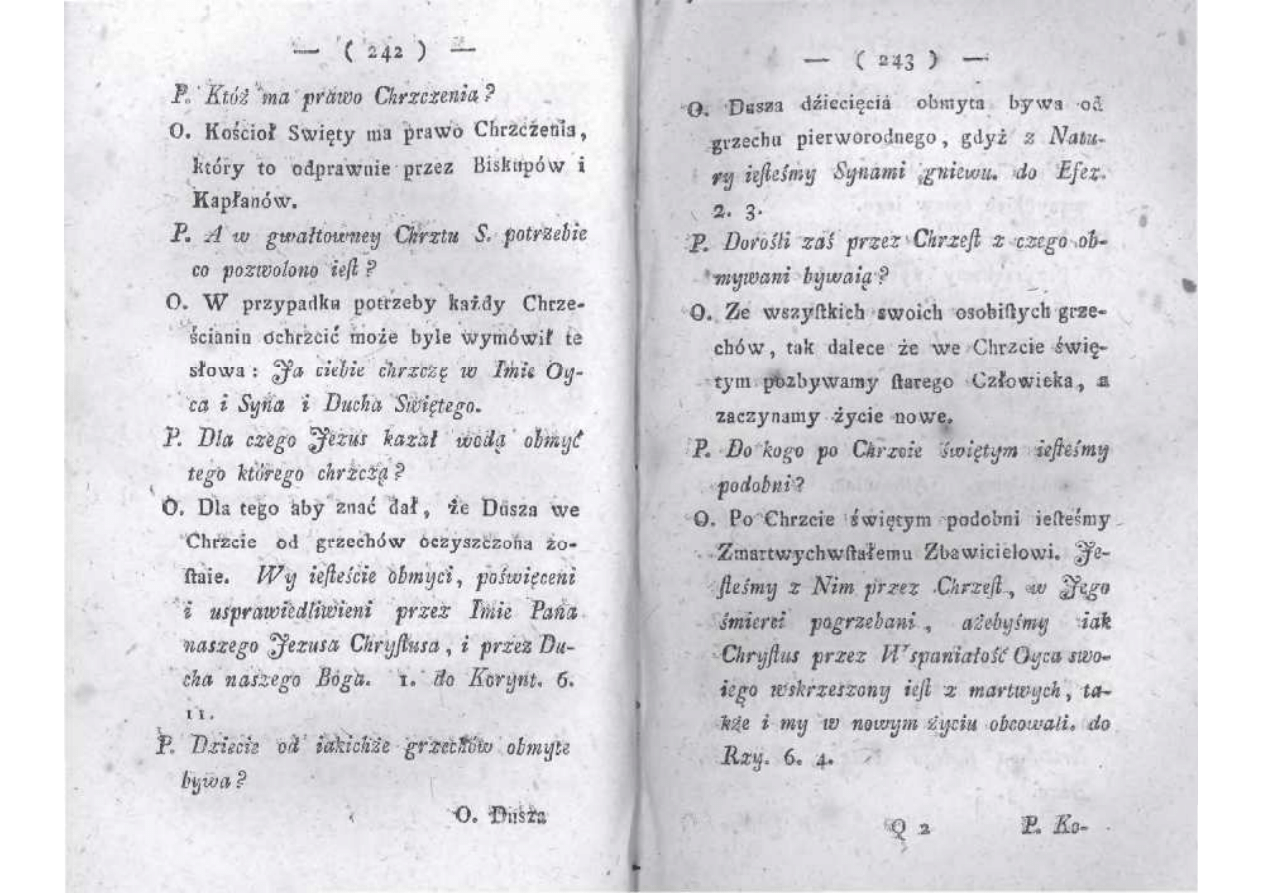 — ( 242 ) —
P. Któż ma prawo Chrzczenia?
O. Kościoł Swięty ma prawo Chrzczenia,
który to odprawuie przez Biskupów i
Kapłanów.
P. A w gwałtowney Chrztu S. potrzebie
co pozwolono ieſt?
O. W przypadku potrzeby każdy Chrze-
ścianin ochrzcić może byle wymówił te
słowa: Ja ciebie chrzczę w Imie Oy-
ca i Syna i Ducha Swiętego.
P. Dla czego Jezus kazał wodą obmyć
tego którego chrzczą?
O. Dla tego aby znać dał, że Dusza we
Chrzcie od grzechów oczyszczona zo-
ſtaie. Wy ieſteście obmyci, poświęceni
i usprawiedliwieni przez Imie Pana
naszego Jezusa Chryſtusa, i przez Du-
cha naszego Boga. 1. do Korynt. 6.
11.
P. Dziecie od iakichże grzechów obmyte
bywa?
O. Dusza
— ( 243 ) —
O. Dusza dziecięcia obmyta bywa od
grzechu pierworodnego, gdyż z Natu-
ry ieſteśmy Synami gniewu. do Efez.
2. 3.
P. Dorośli zaś przez Chrzeſt z czego ob-
mywani bywaią?
O. Ze wszyſtkich swoich osobiſtych grze-
chów, tak dalece że we Chrzcie świę-
tym pozbywamy ſtarego Człowieka, a
zaczynamy życie nowe.
P. Do kogo po Chrzcie świętym ieſteśmy
podobni?
O. Po Chrzcie świętym podobni ieſteśmy
Zmartwychwſtałemu Zbawicielowi. Je-
ſteśmy z Nim przez Chrzeſt, w Jego
śmierci pogrzebani, ażebyśmy iak
Chryſtus przez Wspaniałość Oyca swo-
iego wskrzeszony ieſt z martwych, ta-
kże i my w nowym życiu obcowali. do
Rzy. 6. 4.
Q 2 P. Ko-